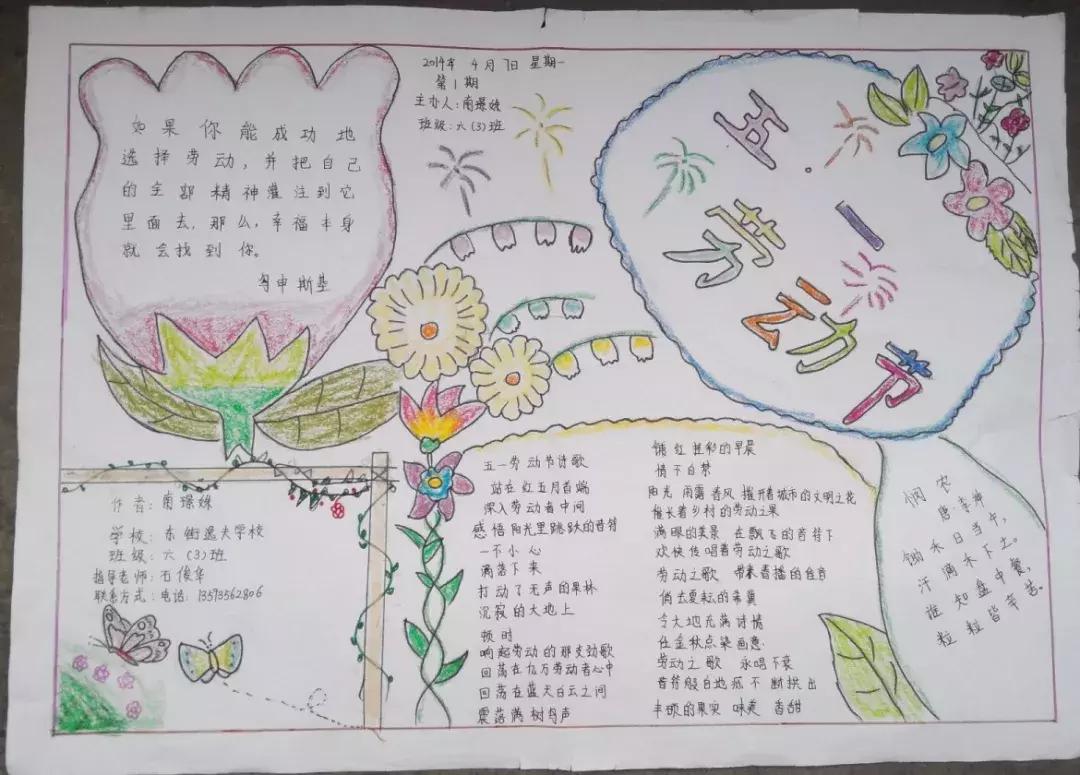 2014年 4月 7日 星期一
第1期
主办人:南璟姝
班级:六(3)班
五.一
劳动节
如果你能成功地
选择劳动,并把自己
的全部精神灌注到它
里面去,那么,幸福本身
就会找到你。
作者:南璟姝
学校:东街逸夫学校
班级:六(3)班
指导老师:石俊华
联系方式:电话:13593562806
五一劳动节诗歌
站在红五月首端
深入劳动者中间
感悟阳光里跳跃的音符
一不小心
滴落下来
打动了无声的果林
沉寂的大地上
顿时
响起劳动的那支劲歌
回荡在亿万劳动者心中
回荡在蓝天白云之间
震落满树鸟声
铺红虹彩的早晨
情不自禁
阳光 雨露 春风 摧开着城市的文明之花
催长着乡村的劳动之果
满眼的美景 在飘飞的音符下
欢快传唱着劳动之歌
劳动之歌 带来春播的佳音
俏去夏耘的希冀
今大地充满诗情
任金秋点染画意
劳动之歌 永唱不衰
音符般自地弧不断拱出
丰硕的果实 味美 香甜
悯农
唐 李绅
锄禾日当午,
汗滴禾下土。
谁知盘中餐,
粒粒皆辛苦。